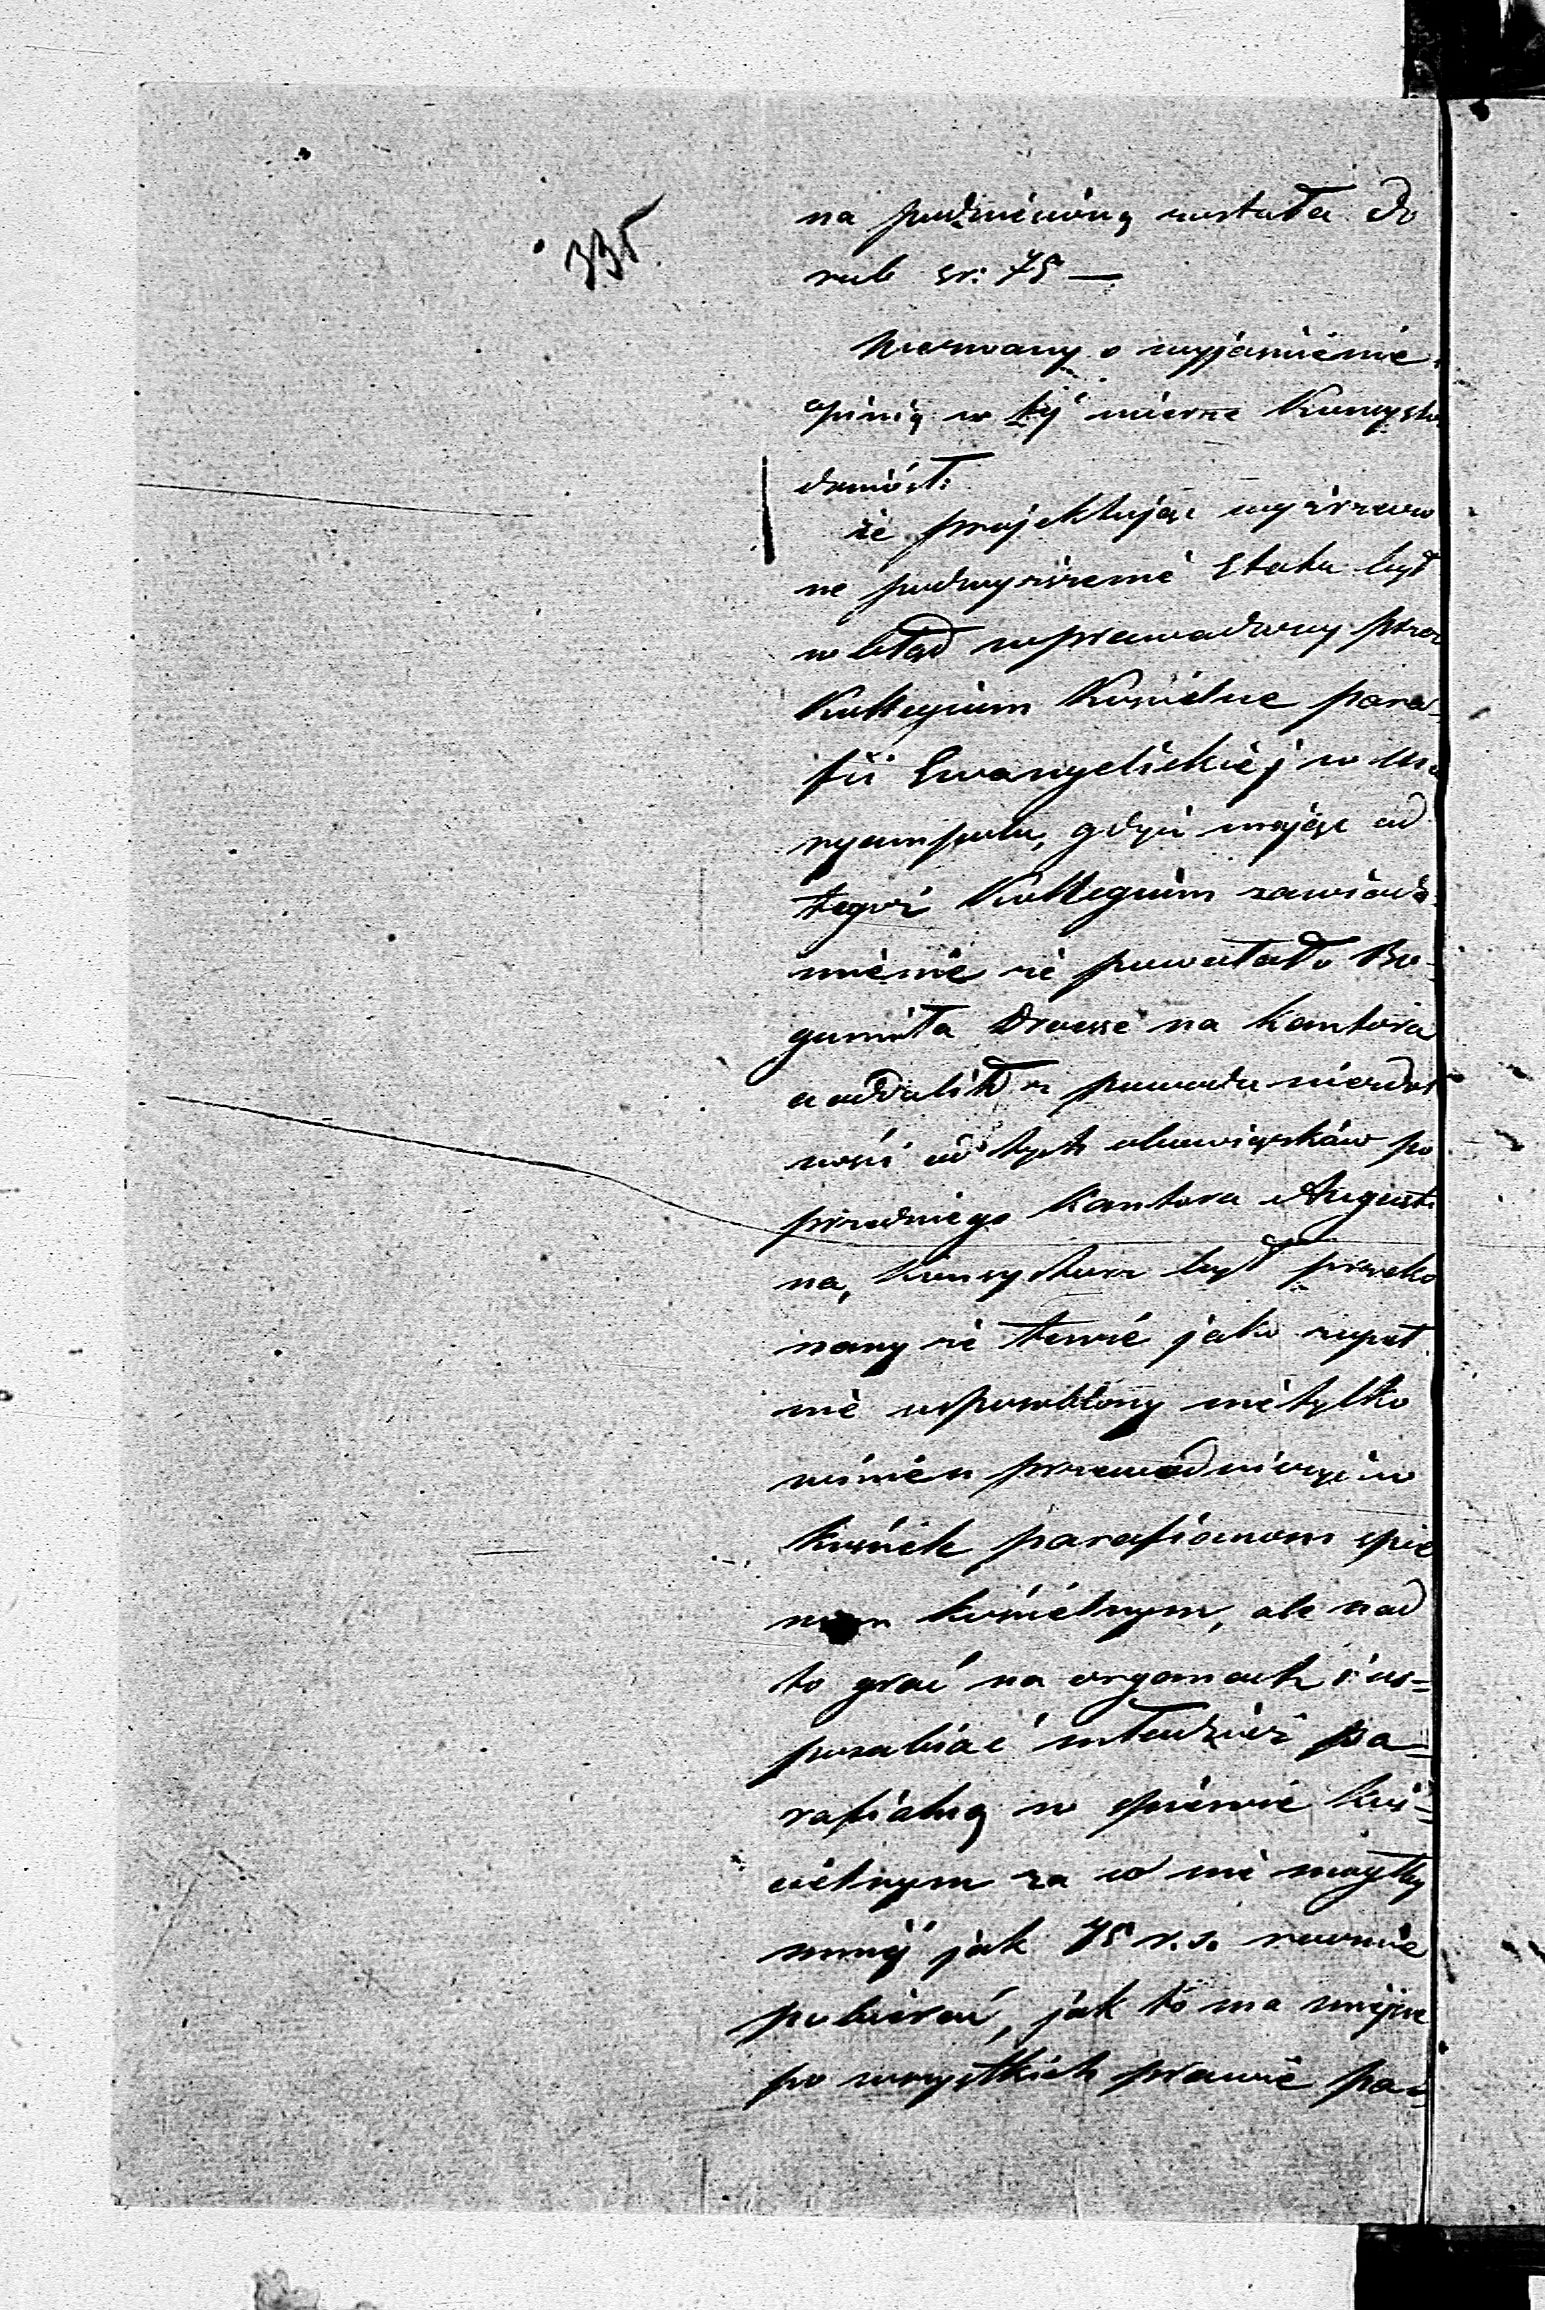 335.
na podniesioną została do
rub sr: 75 —
Wezwany o wyjasnienie
opinią w tej mierze Konsysto
doniósł:
że projektując wyżrzeczo
ne podwyższenie Etatu był
w błąd wprowadzony przez
Kollegium Kościelne para-
fii Ewangelickiej w Ma
ryampolu, gdyż mając od
tegoż Kollegium zawiado-
mienie że powołało Bo-
gumiła Drocese na kantora
a oddalił z powodu niezdol
ności od tych obowiązków po
przedniego Kantora Augusti
na, Konsystorz był przeko
nany że tenże jako zupeł
nie usposobiony nie tylko
winien przewodniczyć w
kościele parafianom śpie
wom kościelnym, ale nad
to grać na organach i us=
posabiać młodzież pa=
rafialną w śpiewie koś=
cielnym za co nie mógłby
mniej jak 75 r. s. rocznie
pobierać, jak to ma miejsce
po wszystkich prawie pa=